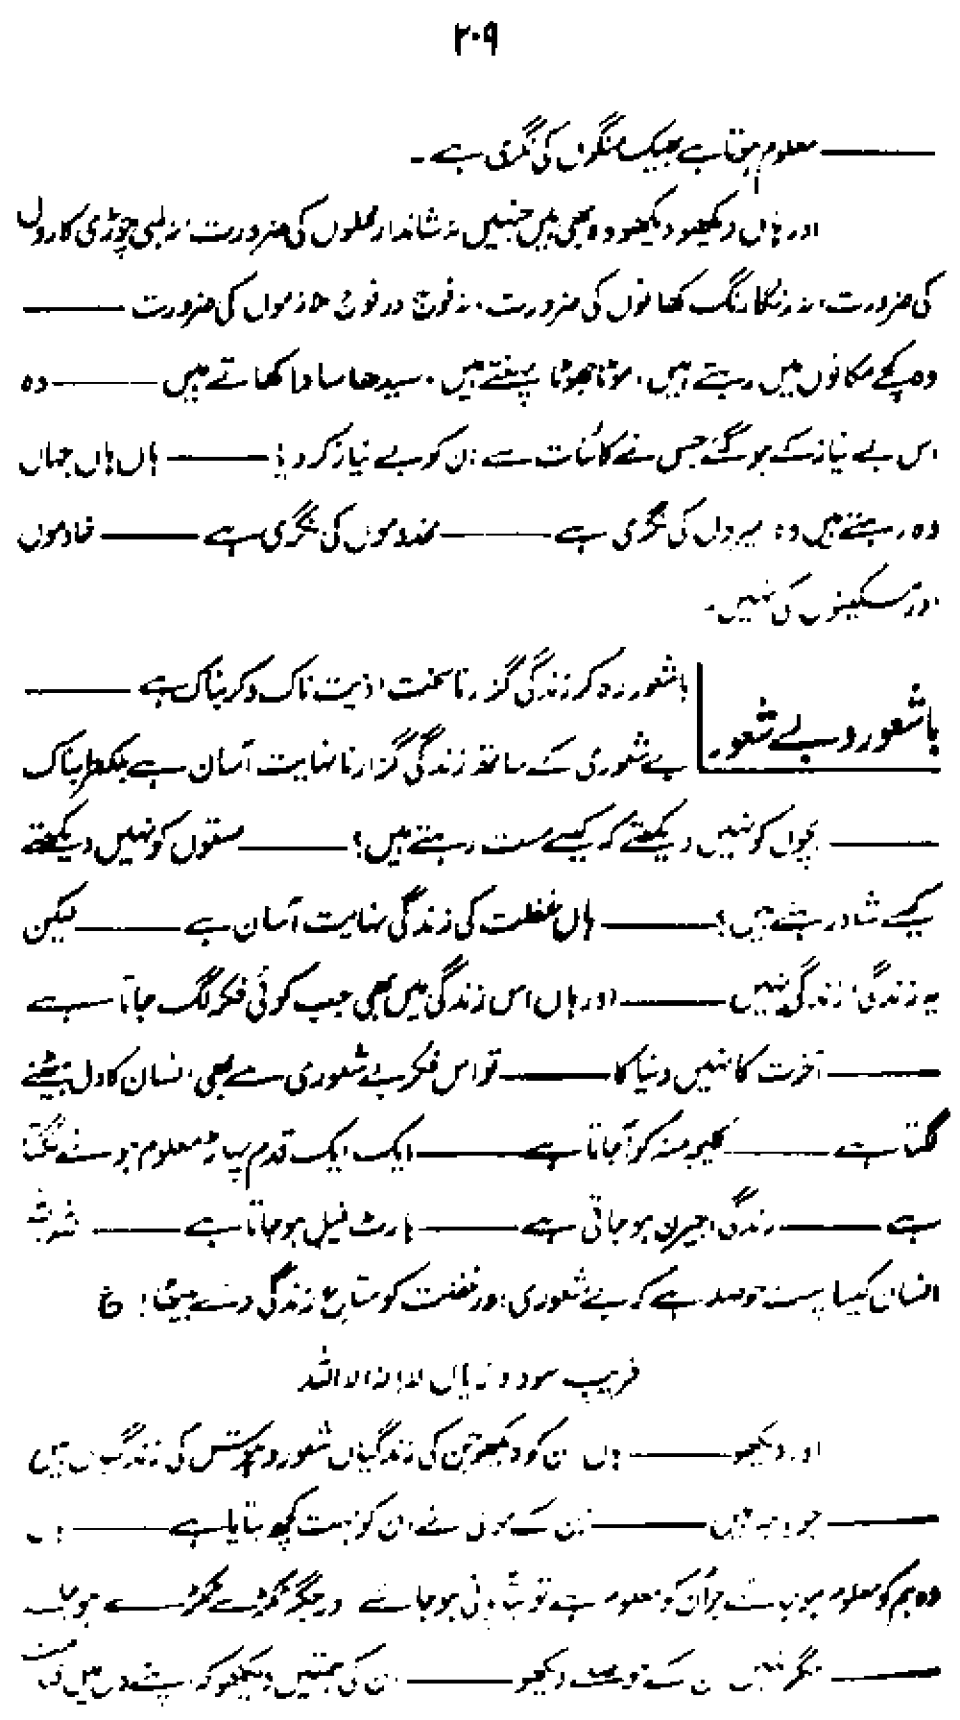 ۲۰۹
——— معلوم ہوتا ہے بھیک منگوں کی نگری ہے ۔
اور ہاں دیکھو دیکھو وہ بھی ہیں جنہیں نہ شاندار محلوں کی ضرورت، نہ لمبی چوڑی کاروں
کی ضرورت، نہ رنگا رنگ کھانوں کی ضرورت، نہ فوج در فوج ملازموں کی ضرورت ———
وہ کچے مکانوں میں رہتے ہیں، موٹا جھوٹا پہنتے ہیں، سیدھا سادا کھاتے ہیں ——— وہ
اس بے نیاز کے ہو گئے جس نے کائنات سے ان کو بے نیاز کر دیا ——— ہاں ہاں جہاں
وہ رہتے ہیں وہ میردل کی نگری ہے ——— مخدوموں کی نگری ہے ——— خادموں
اور مسکینوں کی نہیں۔
باشعور و بے شعور
باشعور رہ کر زندگی گزارنا سخت اذیت ناک و کربناک ہے ———
بے شعوری کے ساتھ زندگی گزارنا نہایت آسان ہے بلکہ طربناک
——— بچوں کو نہیں دیکھتے کہ کیسے مست رہتے ہیں؟ ——— مستوں کو نہیں دیکھتے
کیسے شاد رہتے ہیں؟ ——— ہاں غفلت کی زندگی نہایت آسان ہے ——— لیکن
یہ زندگی، زندگی نہیں ——— اور ہاں اس زندگی میں بھی جب کوئی فکر لگ جاتا ہے
——— آخرت کا نہیں دنیا کا ——— تو اس فکر بے شعوری سے بھی انسان کا دل بیٹھنے
لگتا ہے ——— کلیجہ منہ کو آجاتا ہے ——— ایک ایک قدم پہاڑ معلوم ہونے لگتا
ہے ——— زندگی اجیرن ہو جاتی ہے ——— ہارٹ فیل ہو جاتا ہے ———
انسان کیسا پست حوصلہ ہے کہ بے شعوری اور غفلت کو متاع زندگی دے بیٹھا! ع
فریب سود و زیاں لا الہ الا اللہ
اور دیکھو ——— ہاں ان کو دیکھو جن کی زندگیاں شعور و ہوش کی زندگیاں ہیں
——— جن کے مولی نے ان کو بہت کچھ بتایا ہے ——— ہاں
وہ ہم کو معلوم ہو جائے جو ان کو معلوم ہے تو پانی ہو جائے اور جگر ٹکڑے ٹکڑے ہو جائے
——— مگر نہیں ان کے حوصلے دیکھو ——— ان کی ہمتیں دیکھو کہ اپنے دل میں